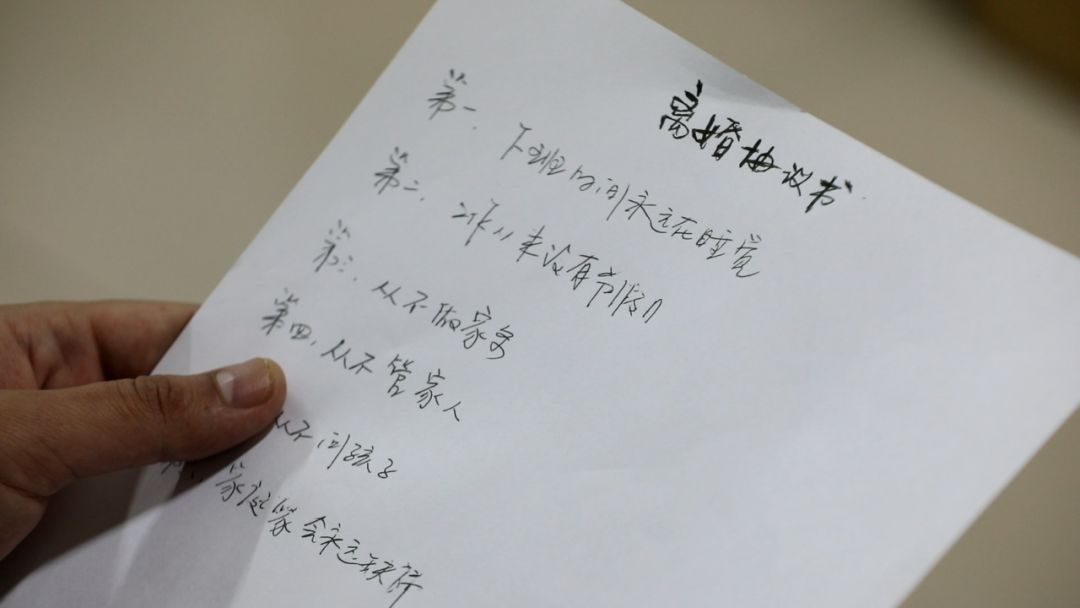 离婚协议书
第一、下班时间永远在睡觉
第二、工作从来没有节假日
第三、从不做家务
第四、从不管家人
从不问孩子
家庭聚会永远缺席